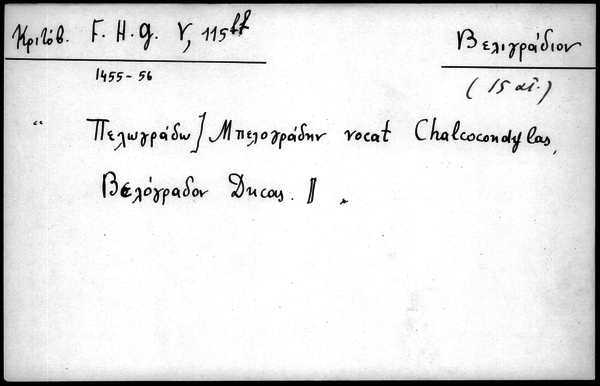 Κριτόβ. F. H. G. V, 115 ff
1455-56
Βελιγράδιον
(15 αἰ.)
“ Πελωγράδω] Μπελογράδην vocat Chalcocondylas,
Βελόγραδον Ducas. ||